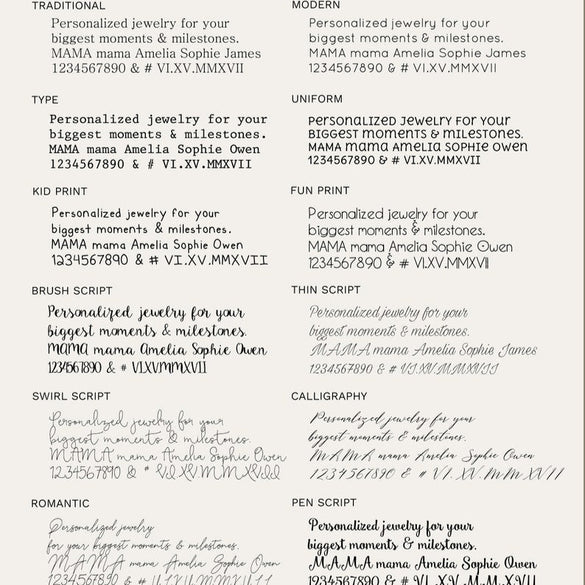 TRADITIONAL
Personalized jewelry for your
biggest moments & milestones.
MAMA mama Amelia Sophie James
1234567890 & # VI.XV.MMXVII
MODERN
Personalized jewelry for your
biggest moments & milestones.
MAMA mama Amelia Sophie James
1234567890 & # VI.XV.MMXVII
TYPE
Personalized jewelry for your
biggest moments & milestones.
MAMA mama Amelia Sophie Owen
1234567890 & # VI.XV.MMXVII
UNIFORM
Personalized Jewelry for your
biggest moments & milestones.
MAMA mama Amelia Sophie Owen
1234567890 & # VI.XV.MMXVII
KID PRINT
Personalized jewelry for your
biggest moments & milestones.
MAMA mama Amelia Sophie Owen
1234567890 & # VI.XV.MMXVII
FUN PRINT
Personalized jewelry for your
biggest moments & milestones.
MAMA mama Amelia Sophie Owen
1234567890 & # VI.XV.MMXVII
BRUSH SCRIPT
Personalized jewelry for your
biggest moments & milestones.
MAMA mama Amelia Sophie Owen
1234567890 & # VI.XV.MMXVII
THIN SCRIPT
Personalized jewelry for your
biggest moments & milestones.
MAMA mama Amelia Sophie James
1234567890 & # VI.XV.MMXVII
SWIRL SCRIPT
Personalized jewelry for your
biggest moments & milestones.
MAMA mama Amelia Sophie Owen
1234567890 & # VI.XV.MMXVII
CALLIGRAPHY
Personalized jewelry for your
biggest moments & milestones.
MAMA mama Amelia Sophie Owen
1234567890 & # VI.XV.MMXVII
ROMANTIC
Personalized jewelry
for your biggest moments & milestones.
MAMA mama Amelia Sophie Owen
1234567890 & # VI.XV.MMXVII
PEN SCRIPT
Personalized jewelry for your
biggest moments & milestones.
MAMA mama Amelia Sophie Owen
1234567890 & # VI.XV.MMXVII